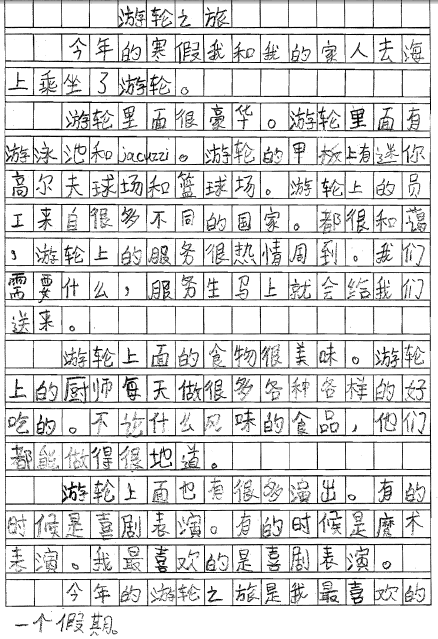 游轮之旅
今年的寒假我和我的家人去海
上乘坐了游轮。
游轮里面很豪华。游轮里面有
游泳池和jacuzzi。游轮的甲板上有迷你
高尔夫球场和篮球场。游轮上的员
工来自很多不同的国家。都很和蔼
,游轮上的服务很热情周到。我们
需要什么,服务生马上就会给我们
送来。
游轮上面的食物很美味。游轮
上的厨师每天做很多各种各样的好
吃的。不论什么风味的食品,他们
都能做得很地道。
游轮上面也有很多演出。有的
时候是喜剧表演。有的时候是魔术
表演。我最喜欢的是喜剧表演。
今年的游轮之旅是我最喜欢的
一个假期。